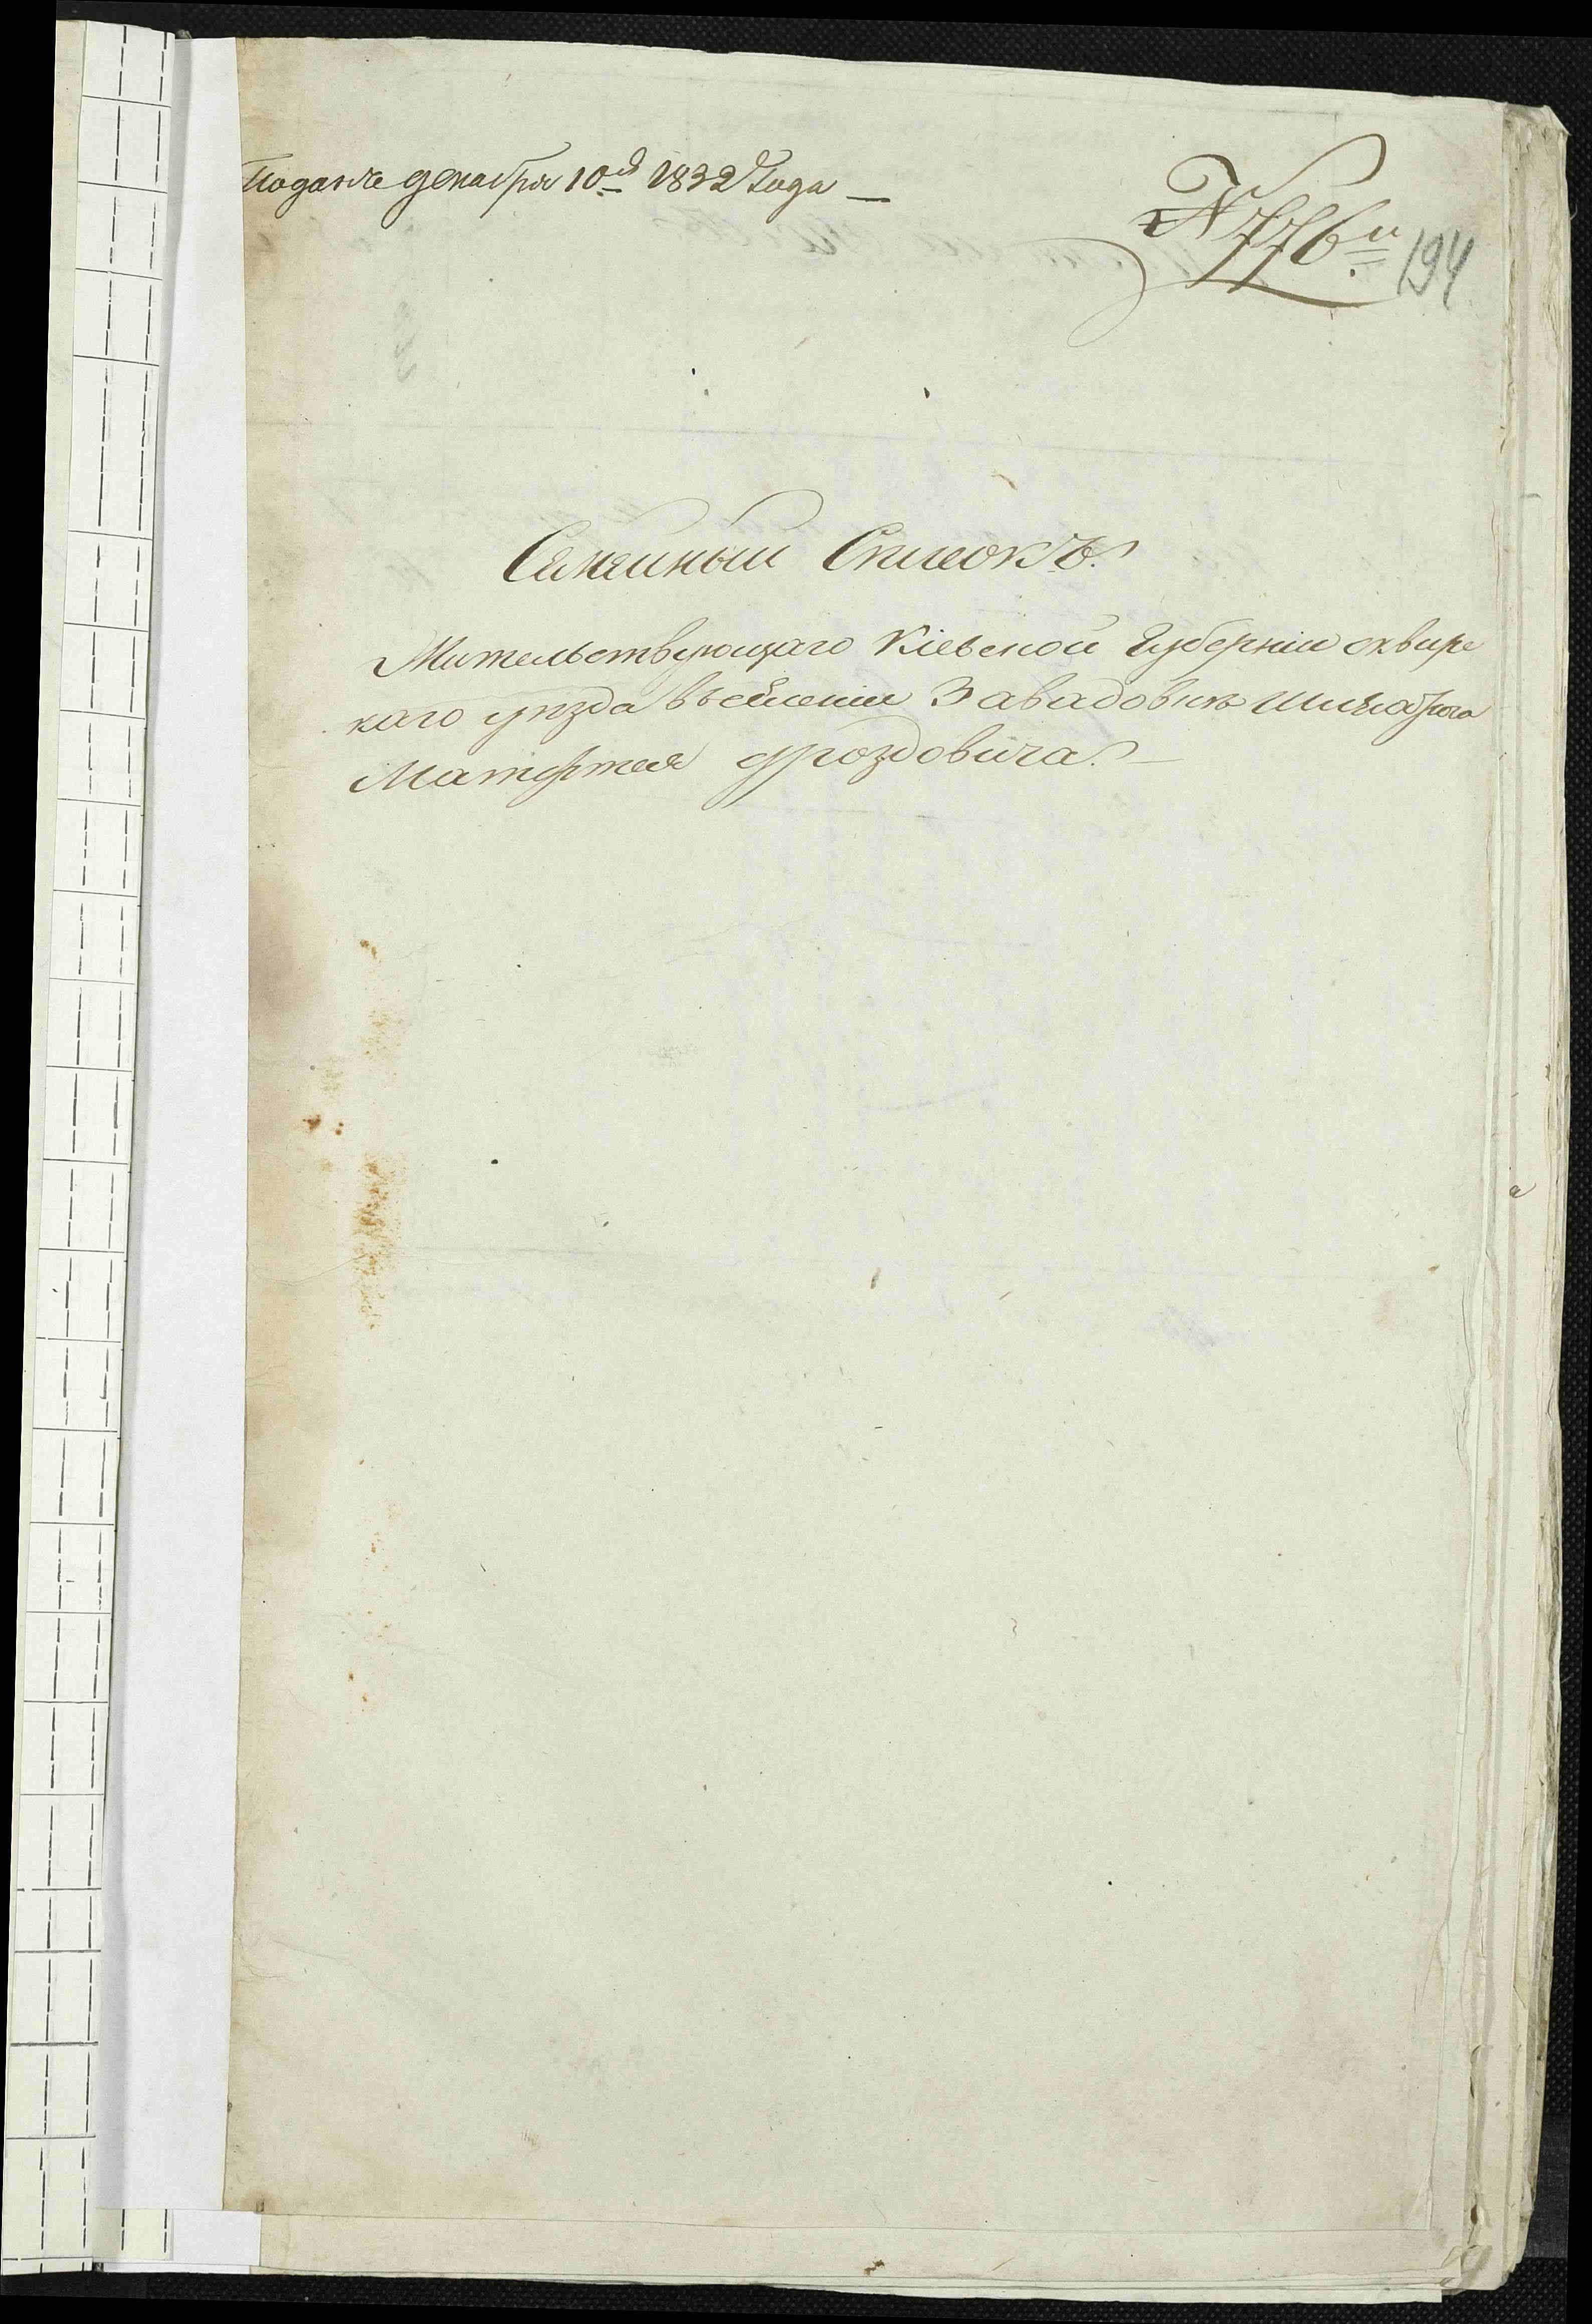 Подана декабря 10го 1832 Года —
№ 776й
194
Семейный Списокъ.
Жительствующаго Кіевской Губерніи сквирс
каго уезда въ селении Завадовке Шляхтича
Матфтея дроздовича. —